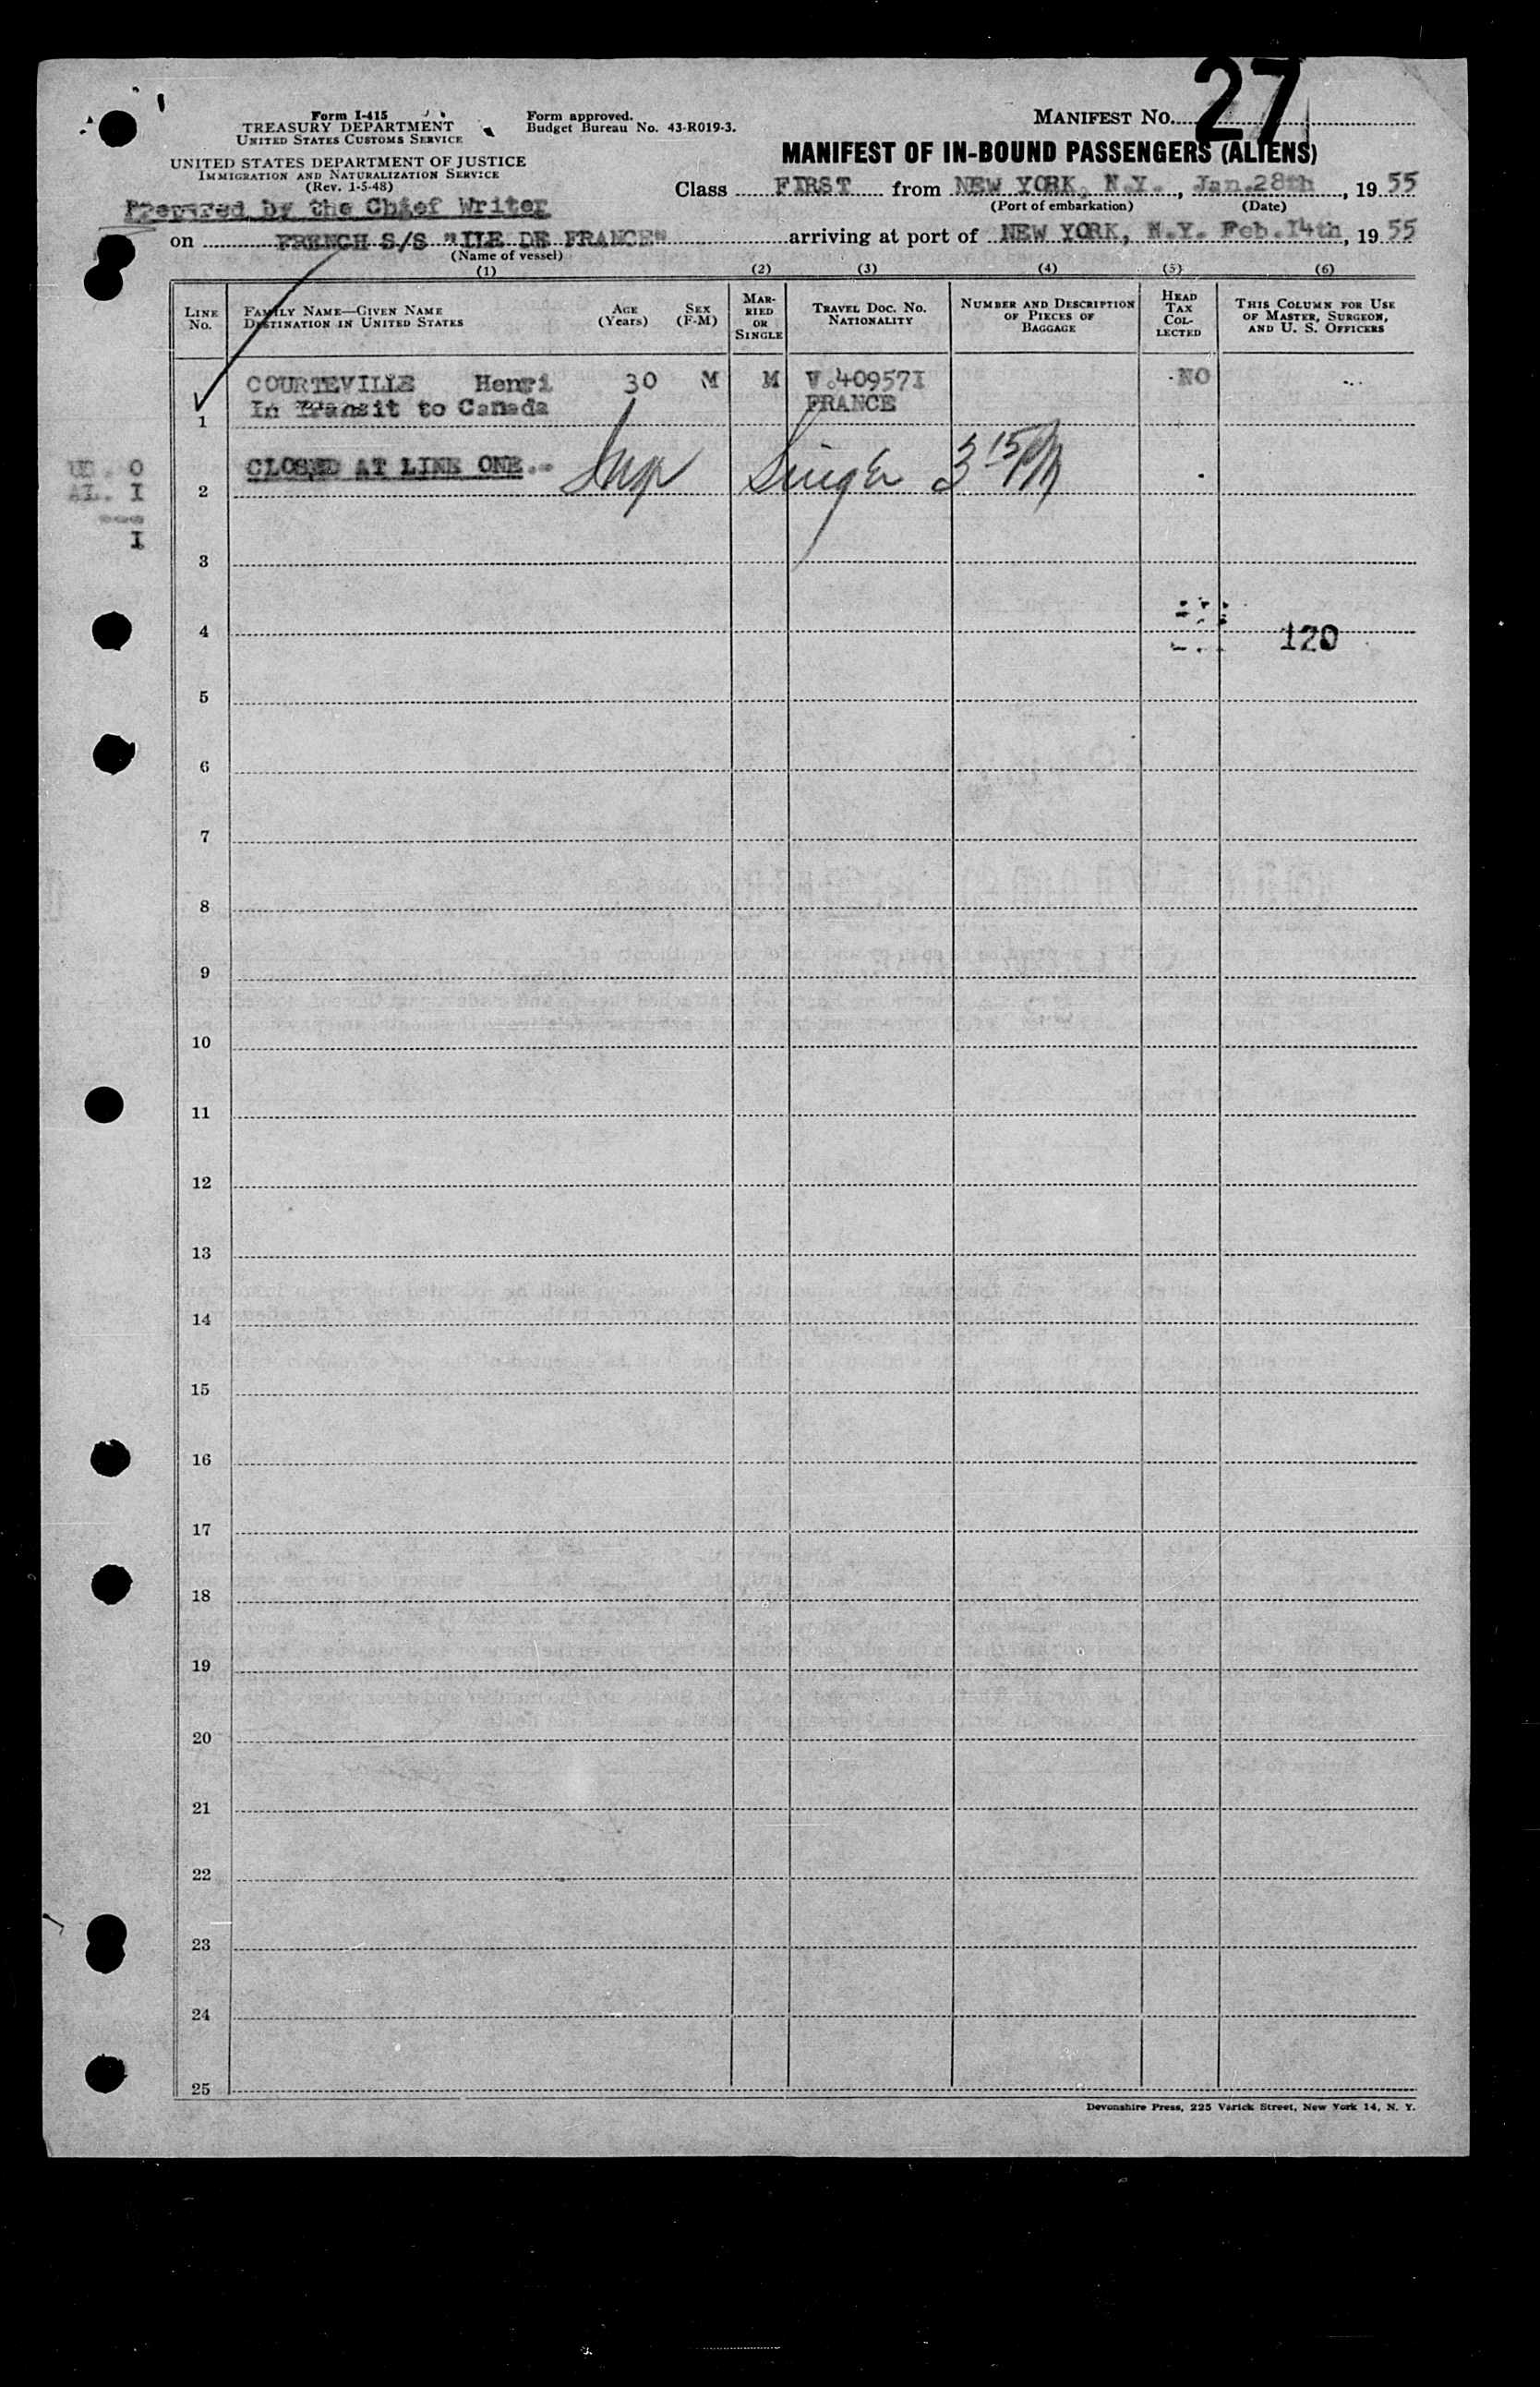 27
Form I-415
TREASURY DEPARTMENT
UNITED STATES CUSTOMS SERVICE
Form approved.
Budget Bureau No. 43-R019-3.
MANIFEST No.
UNITED STATES DEPARTMENT OF JUSTICE
IMMIGRATION AND NATURALIZATION SERVICE
(Rev. 1-5-48)
MANIFEST OF IN-BOUND PASSENGERS (ALIENS)
Class FIRST from NEW YORK, N.Y., Jan.28th, 1955
(Port of embarkation) (Date)
Prepared by the Chief Writer
on FRENCH S/S "ILE DE FRANCE" arriving at port of NEW YORK, N.Y. Feb.14th, 1955
(Name of vessel)
(1) (2) (3) (4) (5) (6)
LINE No.
FAMILY NAME—GIVEN NAME
DESTINATION IN UNITED STATES
AGE (Years)
SEX (F-M)
MAR-RIED OR SINGLE
TRAVEL DOC. NO. NATIONALITY
NUMBER AND DESCRIPTION OF PIECES OF BAGGAGE
HEAD TAX COL-LECTED
THIS COLUMN FOR USE OF MASTER, SURGEON, AND U. S. OFFICERS
COURTEVILLE Henri 30 M M V.409571 NO
In Transit to Canada FRANCE
1
CLOSED AT LINE ONE.- Insp Singer 3 15 PM
2
0
AL. I
---
I
3
4 120
5
6
7
8
9
10
11
12
13
14
15
16
17
18
19
20
21
22
23
24
25
Devonshire Press, 225 Varick Street, New York 14, N. Y.